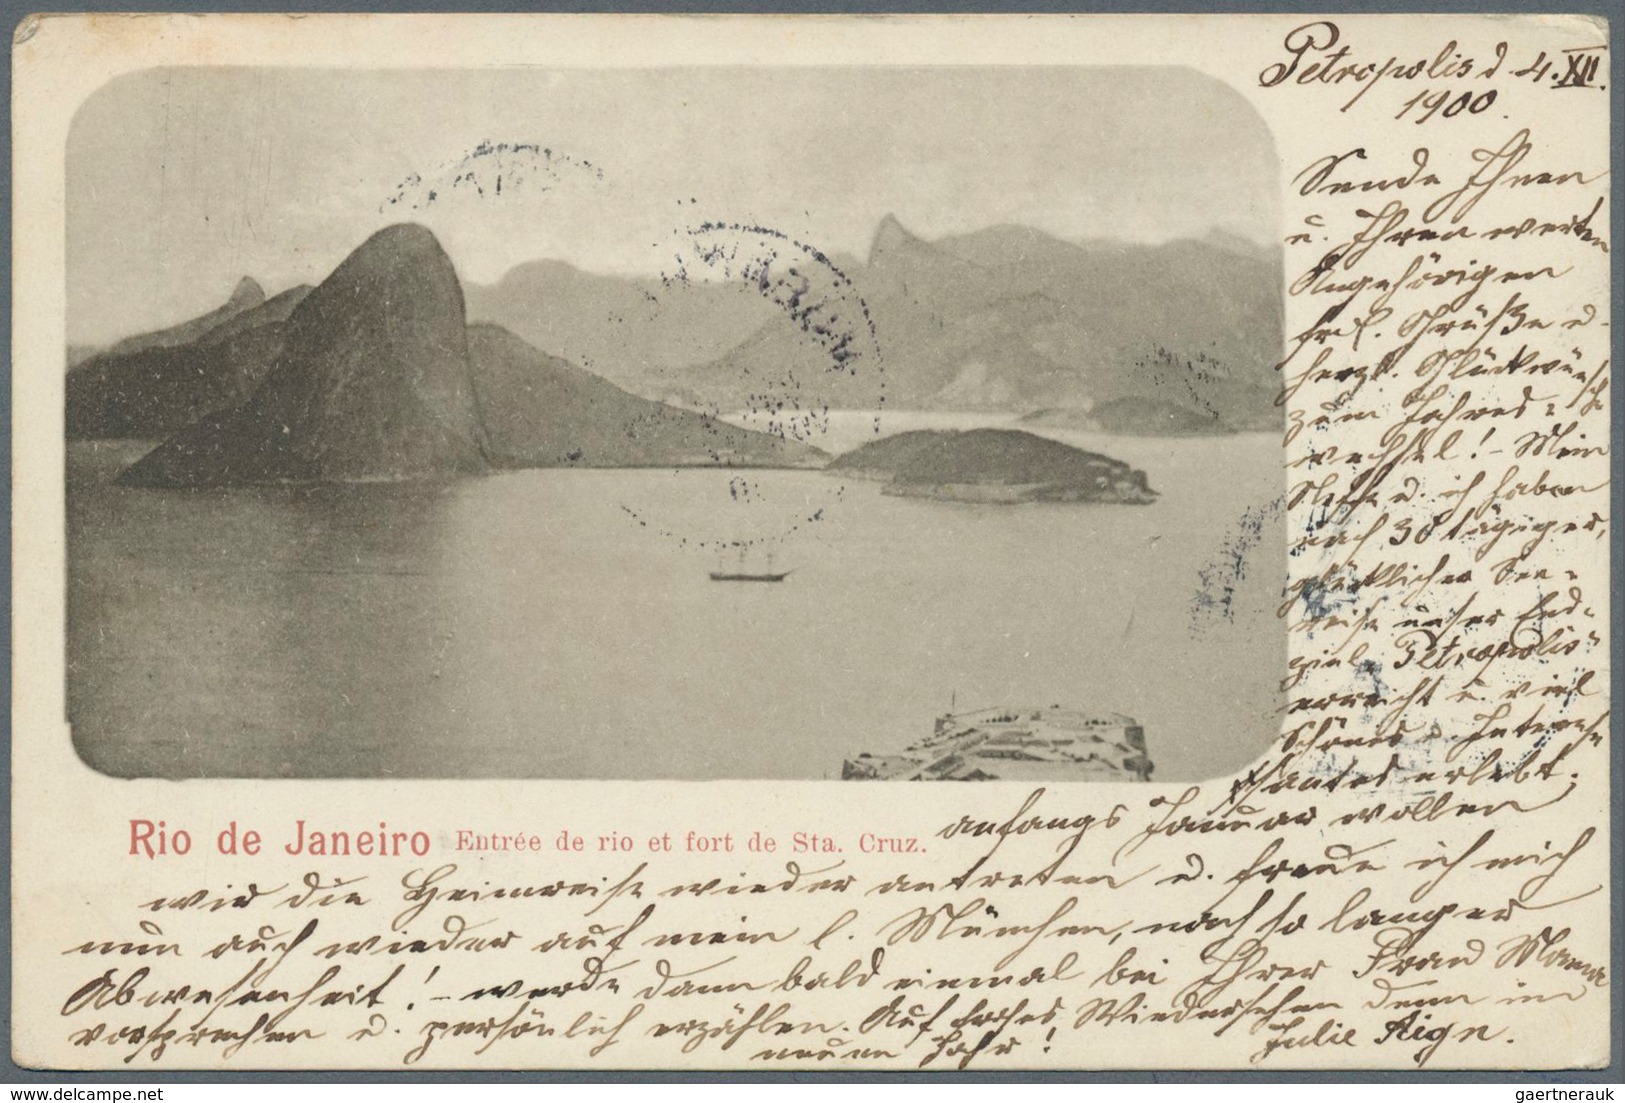 Petropolis d. 4. XII.
1900.
Sende Ihnen
u. Ihren werten
Angehörigen
frdl. Grüße u.
herzl. Glückwünsche
zum Jahres=
wechsel! – Mein
Neffe u. ich haben
nach 30 tägiger,
glücklicher See=
reise unser End=
ziel „Petropolis"
erreicht u. viel
Schönes u. Interes
santes erlebt.
anfangs Januar wollen
wir die Heimreise wieder antreten u. freue ich mich
nun auch wieder auf mein l. München, nach so langer
Abwesenheit! – werde dann bald einmal bei Ihrer Frau Mama
vorsprechen u. persönlich erzählen. Auf frohes Wiedersehen denn im
neuen Jahr!
Julie Aign.
Rio de Janeiro Entrée de rio et fort de Sta. Cruz.
gaertnerauk